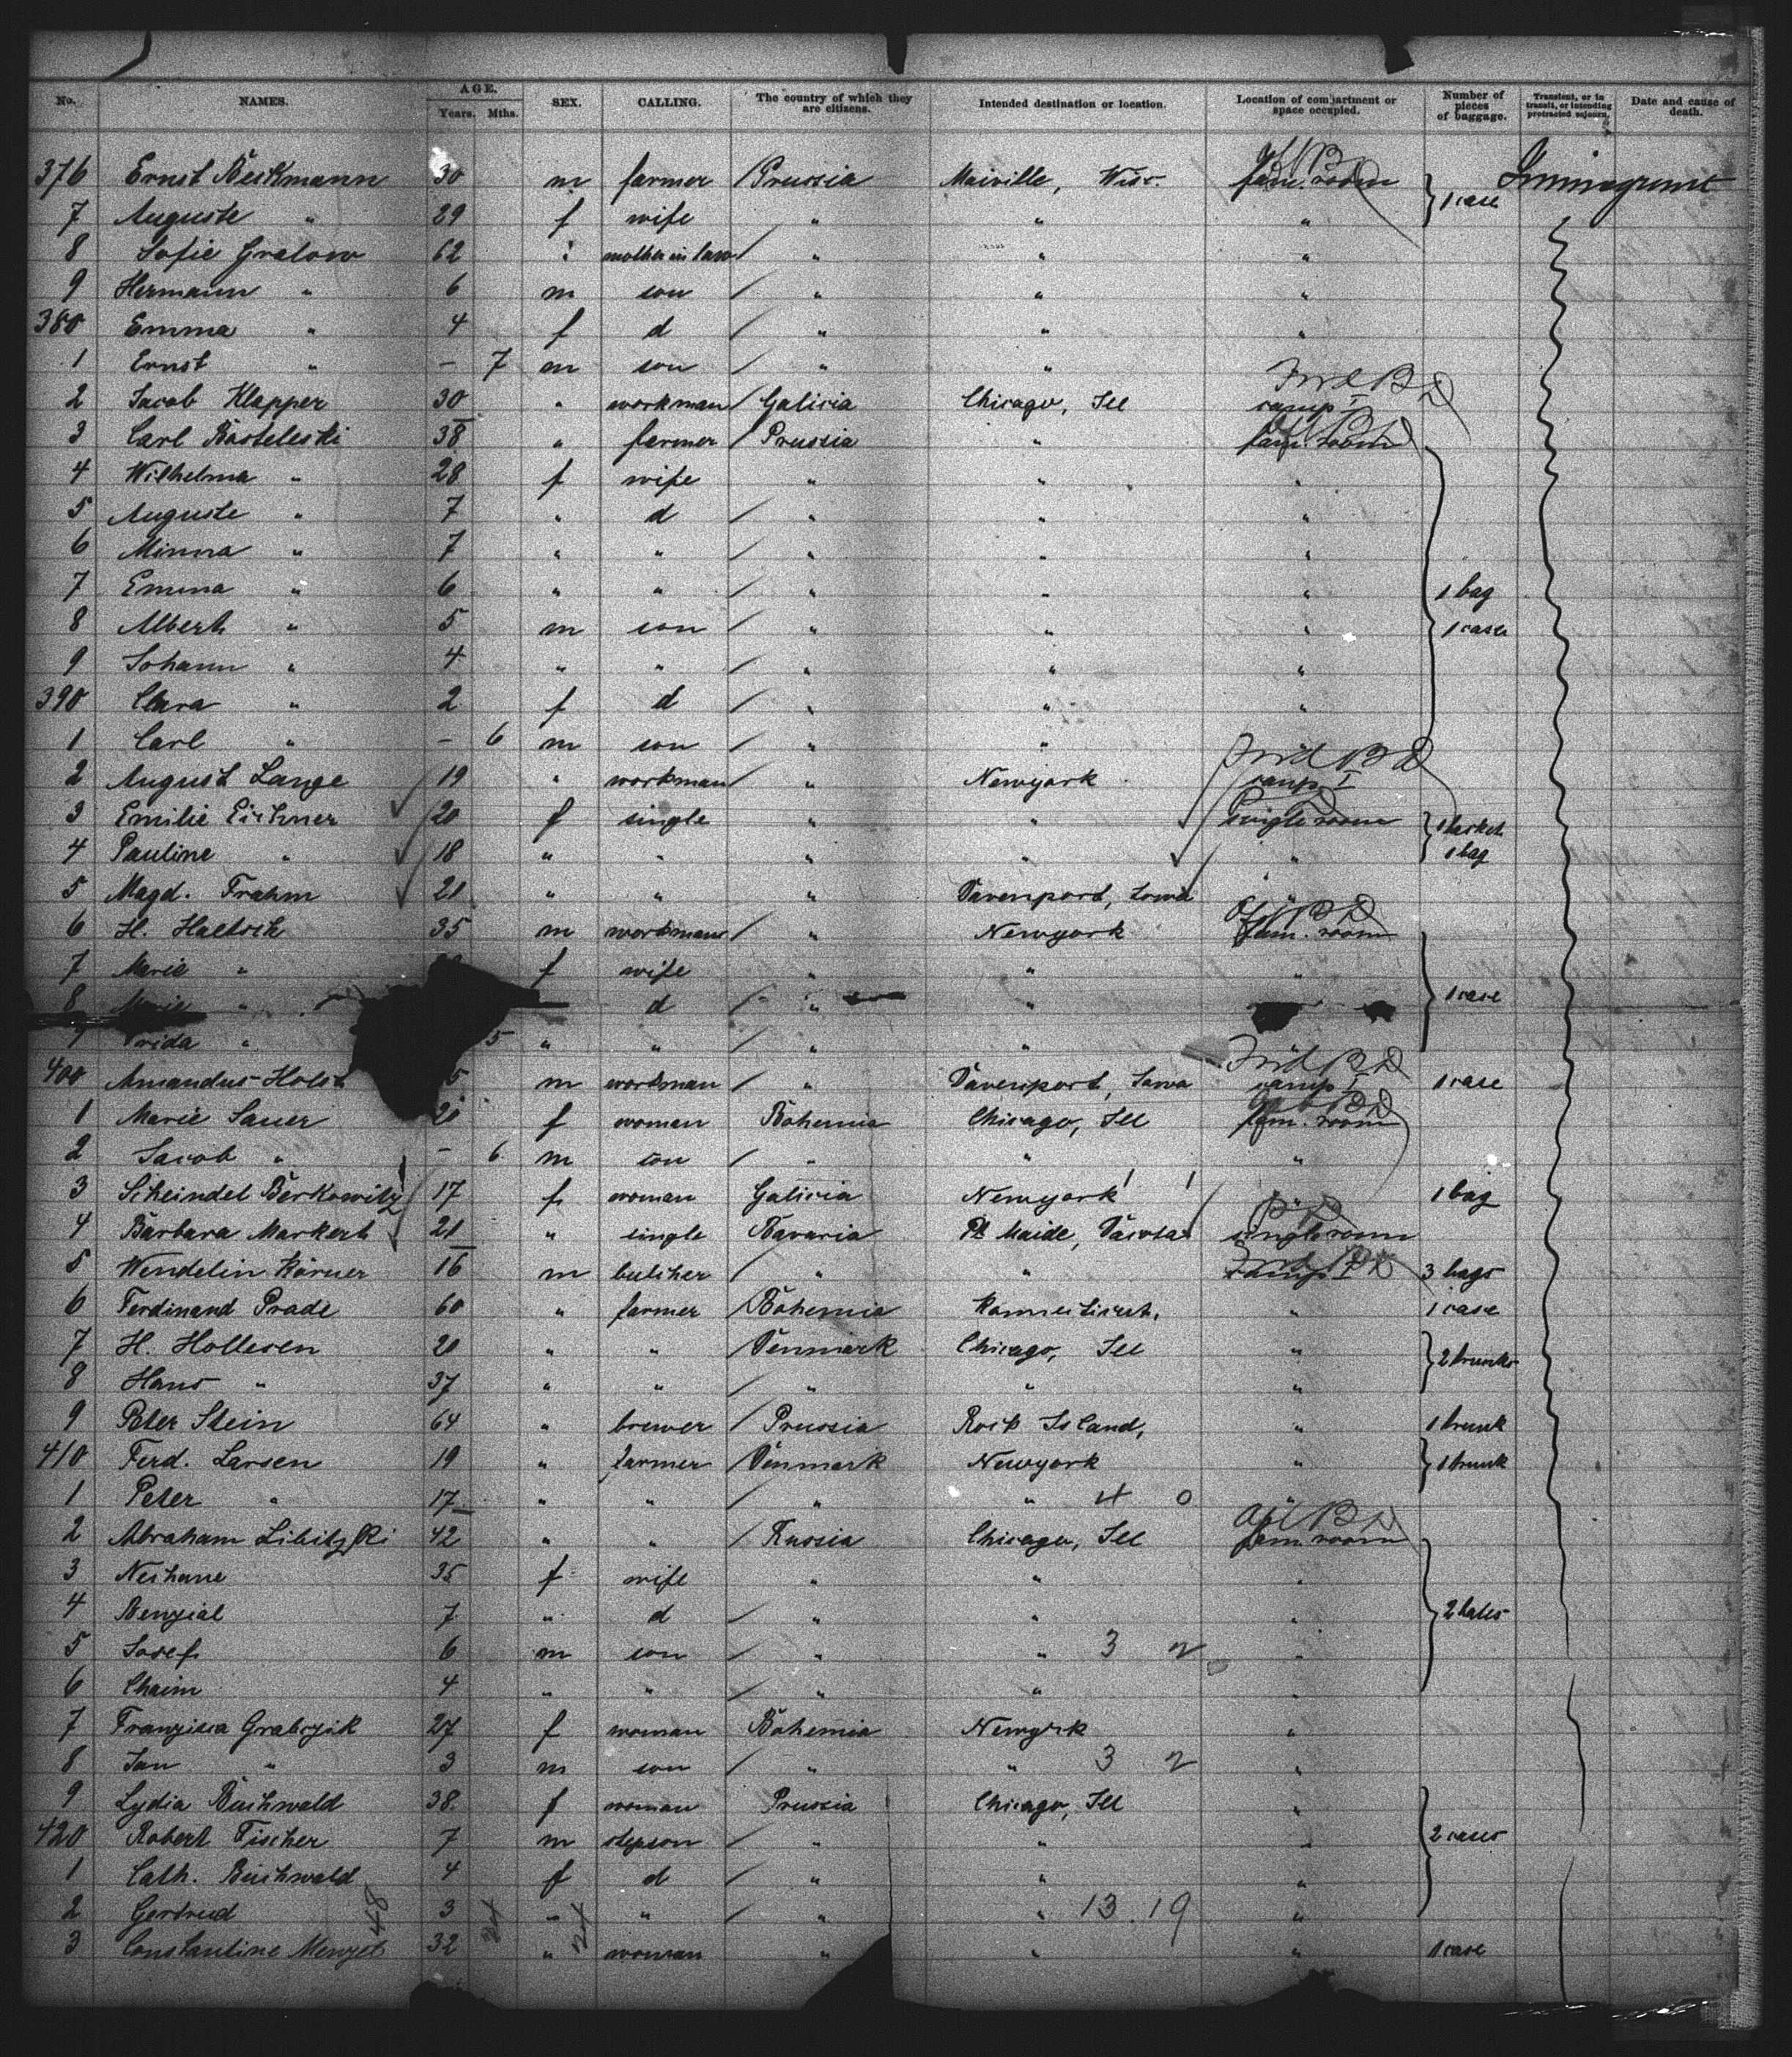 No. NAMES. AGE. Years. Mths. SEX. CALLING. The country of which they are citizens. Intended destination or location. Location of compartment or space occupied. Number of pieces of baggage. Transient, or in transit, or intending protracted sojourn. Date and cause of death.
376 Ernst Beckmann 30 m farmer Prussia Maiville, Wisc. fam. room 1 case Immigrant
7 Auguste " 29 f wife " " "
8 Sofie Gralow 62 " mother in law " " "
9 Hermann " 6 m son " " "
380 Emma " 4 f d " " "
1 Ernst " - 7 m son " "
2 Jacob Klapper 30 " workman Galicia Chicago, Ill camp I
3 Carl Basteleski 38 " farmer Prussia " fam. room
4 Wilhelma " 28 f wife " " "
5 Auguste " 7 " d " " "
6 Minna " 7 " " " " "
7 Emma " 6 " " " " " 1 bag
8 Albert " 5 m son " " " 1 case
9 Johann " 4 " " " " "
390 Clara " 2 f d " " "
1 Carl " - 6 m son " "
2 August Lange 19 " workman " Newyork camp I
3 Emilie Eichner 20 f single " " single room 1 basket
4 Pauline " 18 " " " " " 1 bag
5 Magd. Frahm 21 " " " Davenport, Iowa "
6 H. Haetsch 35 m workman " Newyork fam. room
7 Marie " f wife " " "
8 " d " " 1 case
9 Frida " 5 " " " " "
400 Amandus Holst m workman " Davenport, Iowa camp I 1 case
1 Marie Sauer 20 f woman Bohemia Chicago, Ill fam. room
2 Jacob " - 6 m son " " "
3 Scheindel Berkowitz 17 f woman Galicia Newyork " 1 bag
4 Barbara Markert 21 " single Bavaria single room
5 Wendelin Körner 16 m butcher " " camp I 3 bags
6 Ferdinand Prade 60 " farmer Bohemia " 1 case
7 H. Hollesen 20 " " Denmark Chicago, Ill " 2 trunks
8 Hans " 37 " " " " "
9 Peter Stein 64 " brewer Prussia Rock Island, " 1 trunk
410 Ferd. Larsen 19 " farmer Denmark Newyork " 1 trunk
1 Peter " 17 " " " " 4 0 "
2 Abraham Libitzski 42 " " Russia Chicago, Ill fam. room
3 Nechane 35 f wife " " "
4 Benzial 7 " d " " " 2 bales
5 Josef 6 m son " " 3 2 "
6 Chaim 4 " " " " "
7 Franziska Grabczik 27 f woman Bohemia Newyork "
8 Jan " 3 m son " " 3 2 "
9 Lydia Buchwald 38 f woman Prussia Chicago, Ill "
420 Robert Fischer 7 m stepson " " " 2 cases
1 Cath. Buchwald 4 f d " " "
2 Gertrud 3 " " " " 13 19 "
3 Constantine Menzel 32 " woman " " " 1 case
48 24 24